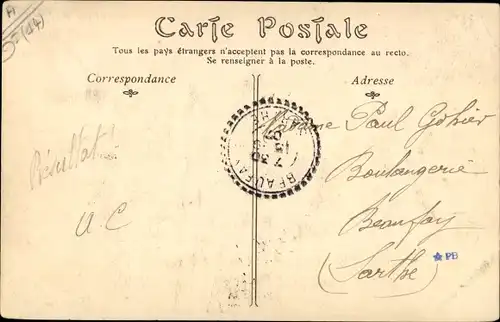 Carte Postale
Tous les pays étrangers n'acceptent pas la correspondance au recto.
Se renseigner à la poste.
Correspondance
Adresse
Paul Gohier
Boulangerie
Beaufay
(Sarthe)
Résultat
U C
BEAUFAY
7 30
15
PB